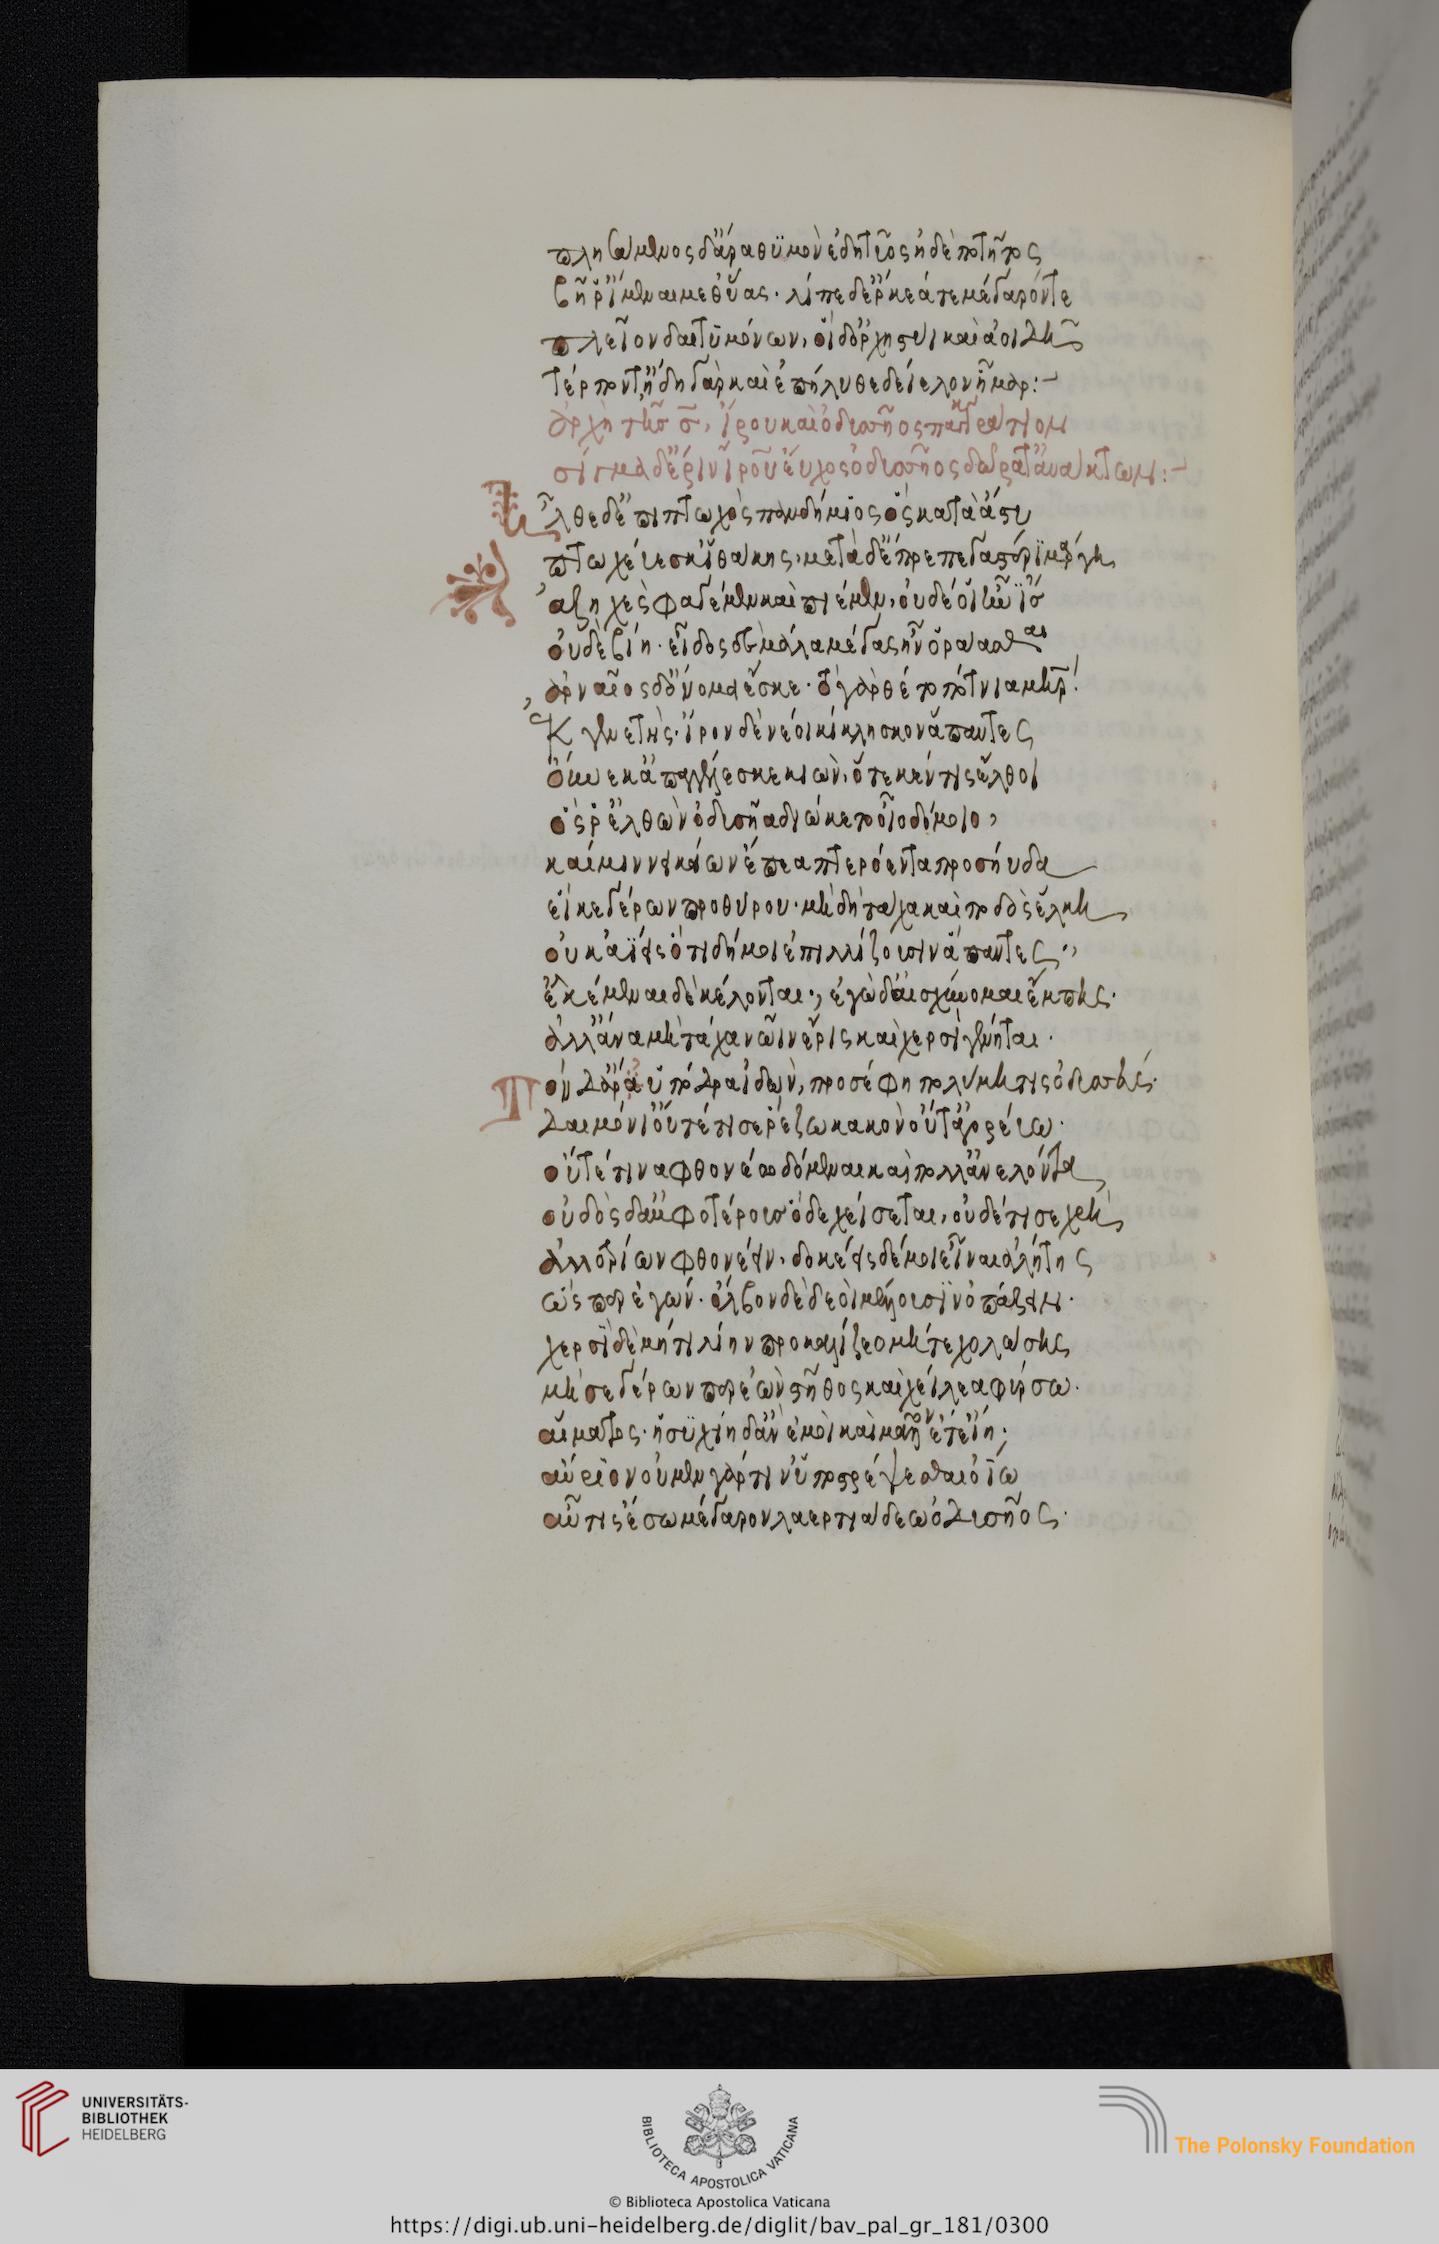 πλησάμενος δ' ἄρα θυμὸν ἐδητύος ἠδὲ ποτῆτος
βῆ ῥ' ἴμεναι μεθ' ὕας· λίπε δ' ἕρκεά τε μέγαρόν τε
πλεῖον δαιτυμόνων, οἱ δ' ὀρχηστυῖ καὶ ἀοιδῆ
τέρποντ', ἤδη γὰρ καὶ ἐπήλυθε δείελον ἦμαρ:-
ἀρχὴ τῆς σ, ἴρου καὶ ὀδυσσῆος παγκράτιον
σίγμα δ' ἔριν ἴρου εὖχος ὀδυσσῆος δῶρά τ' ἀνάκτων:-
Ἦλθε δ' ἐπὶ πτωχὸς πανδήμιος ὃς κατὰ ἄστυ
πτωχεύεσκ' ἰθάκης, μετὰ δ' ἔπρεπε γαστέρι μάργη
ἀζηχὲς φαγέμεν καὶ πιέμεν, οὐδέ οἱ ἦν ἲς
οὐδὲ βίη· εἶδος δὲ μάλα μέγας ἦν ὁράασθαι
ἀρναῖος δ' ὄνομα ἔσκε· τὸ γὰρ θέτο πότνια μήτηρ
ἐκ γενετῆς· ἶρον δὲ νέοι κίκλησκον ἅπαντες
οὕνεκ' ἀπαγγέλλεσκε κιὼν, ὅτε κέν τις ἔλθοι
ὅς ῥ' ἐλθὼν ὀδυσῆα διώκετο οἷο δόμοιο,
καί μιν νεικείων ἔπεα πτερόεντα προσηύδα
εἶκε γέρων προθύρου· μὴ δὴ τάχα καὶ ποδὸς ἕλκη
οὐκ ἀΐεις ὅτι δή μοι ἐπιλλίζουσιν ἅπαντες·,
ἑλκέμεναι δὲ κέλονται·, ἐγὼ δ' αἰσχύνομαι ἔμπης·
ἀλλ' ἄνα μὴ τάχα νῶιν ἔρις καὶ χερσὶ γένηται·
Τὸν δ' ἄρ' ὑπόδρα ἰδὼν, προσέφη πολύμητις ὀδυσσεύς·
δαιμόνι' οὔτέ τί σε ῥέζω κακὸν οὔτ' ἀγορεύω·
οὔτέ τινα φθονέω δόμεναι καὶ πόλλ' ἀνελόντα
οὐδὸς δ' ἀμφοτέρους ὅδε χείσεται, οὐδέ τί σε χρὴ
ἀλλοτρίων φθονέειν, δοκέεις δέ μοι εἶναι ἀλήτης
ὥς περ ἐγών· ὄλβον δὲ θεοὶ μέλλουσιν ὀπάζειν·
χερσὶ δὲ μή τι λίην προκαλίζεο μή τε χολώσης
μή σε γέρων περ ἐὼν στῆθος καὶ χείλεα φύρσω·
αἵματος· ἡσυχίη δ' ἂν ἐμοὶ καὶ μᾶλλον ἔτ' εἴη;
αὔριον οὐ μὲν γάρ τί ν' ὑποστρέψεσθαι ὀΐω
αὖτις ἔσω μέγαρον λαερτιάδεω ὀδυσῆος·
UNIVERSITÄTS-
BIBLIOTHEK
HEIDELBERG
BIBLIOTECA APOSTOLICA VATICANA
The Polonsky Foundation
© Biblioteca Apostolica Vaticana
https://digi.ub.uni-heidelberg.de/diglit/bav_pal_gr_181/0300